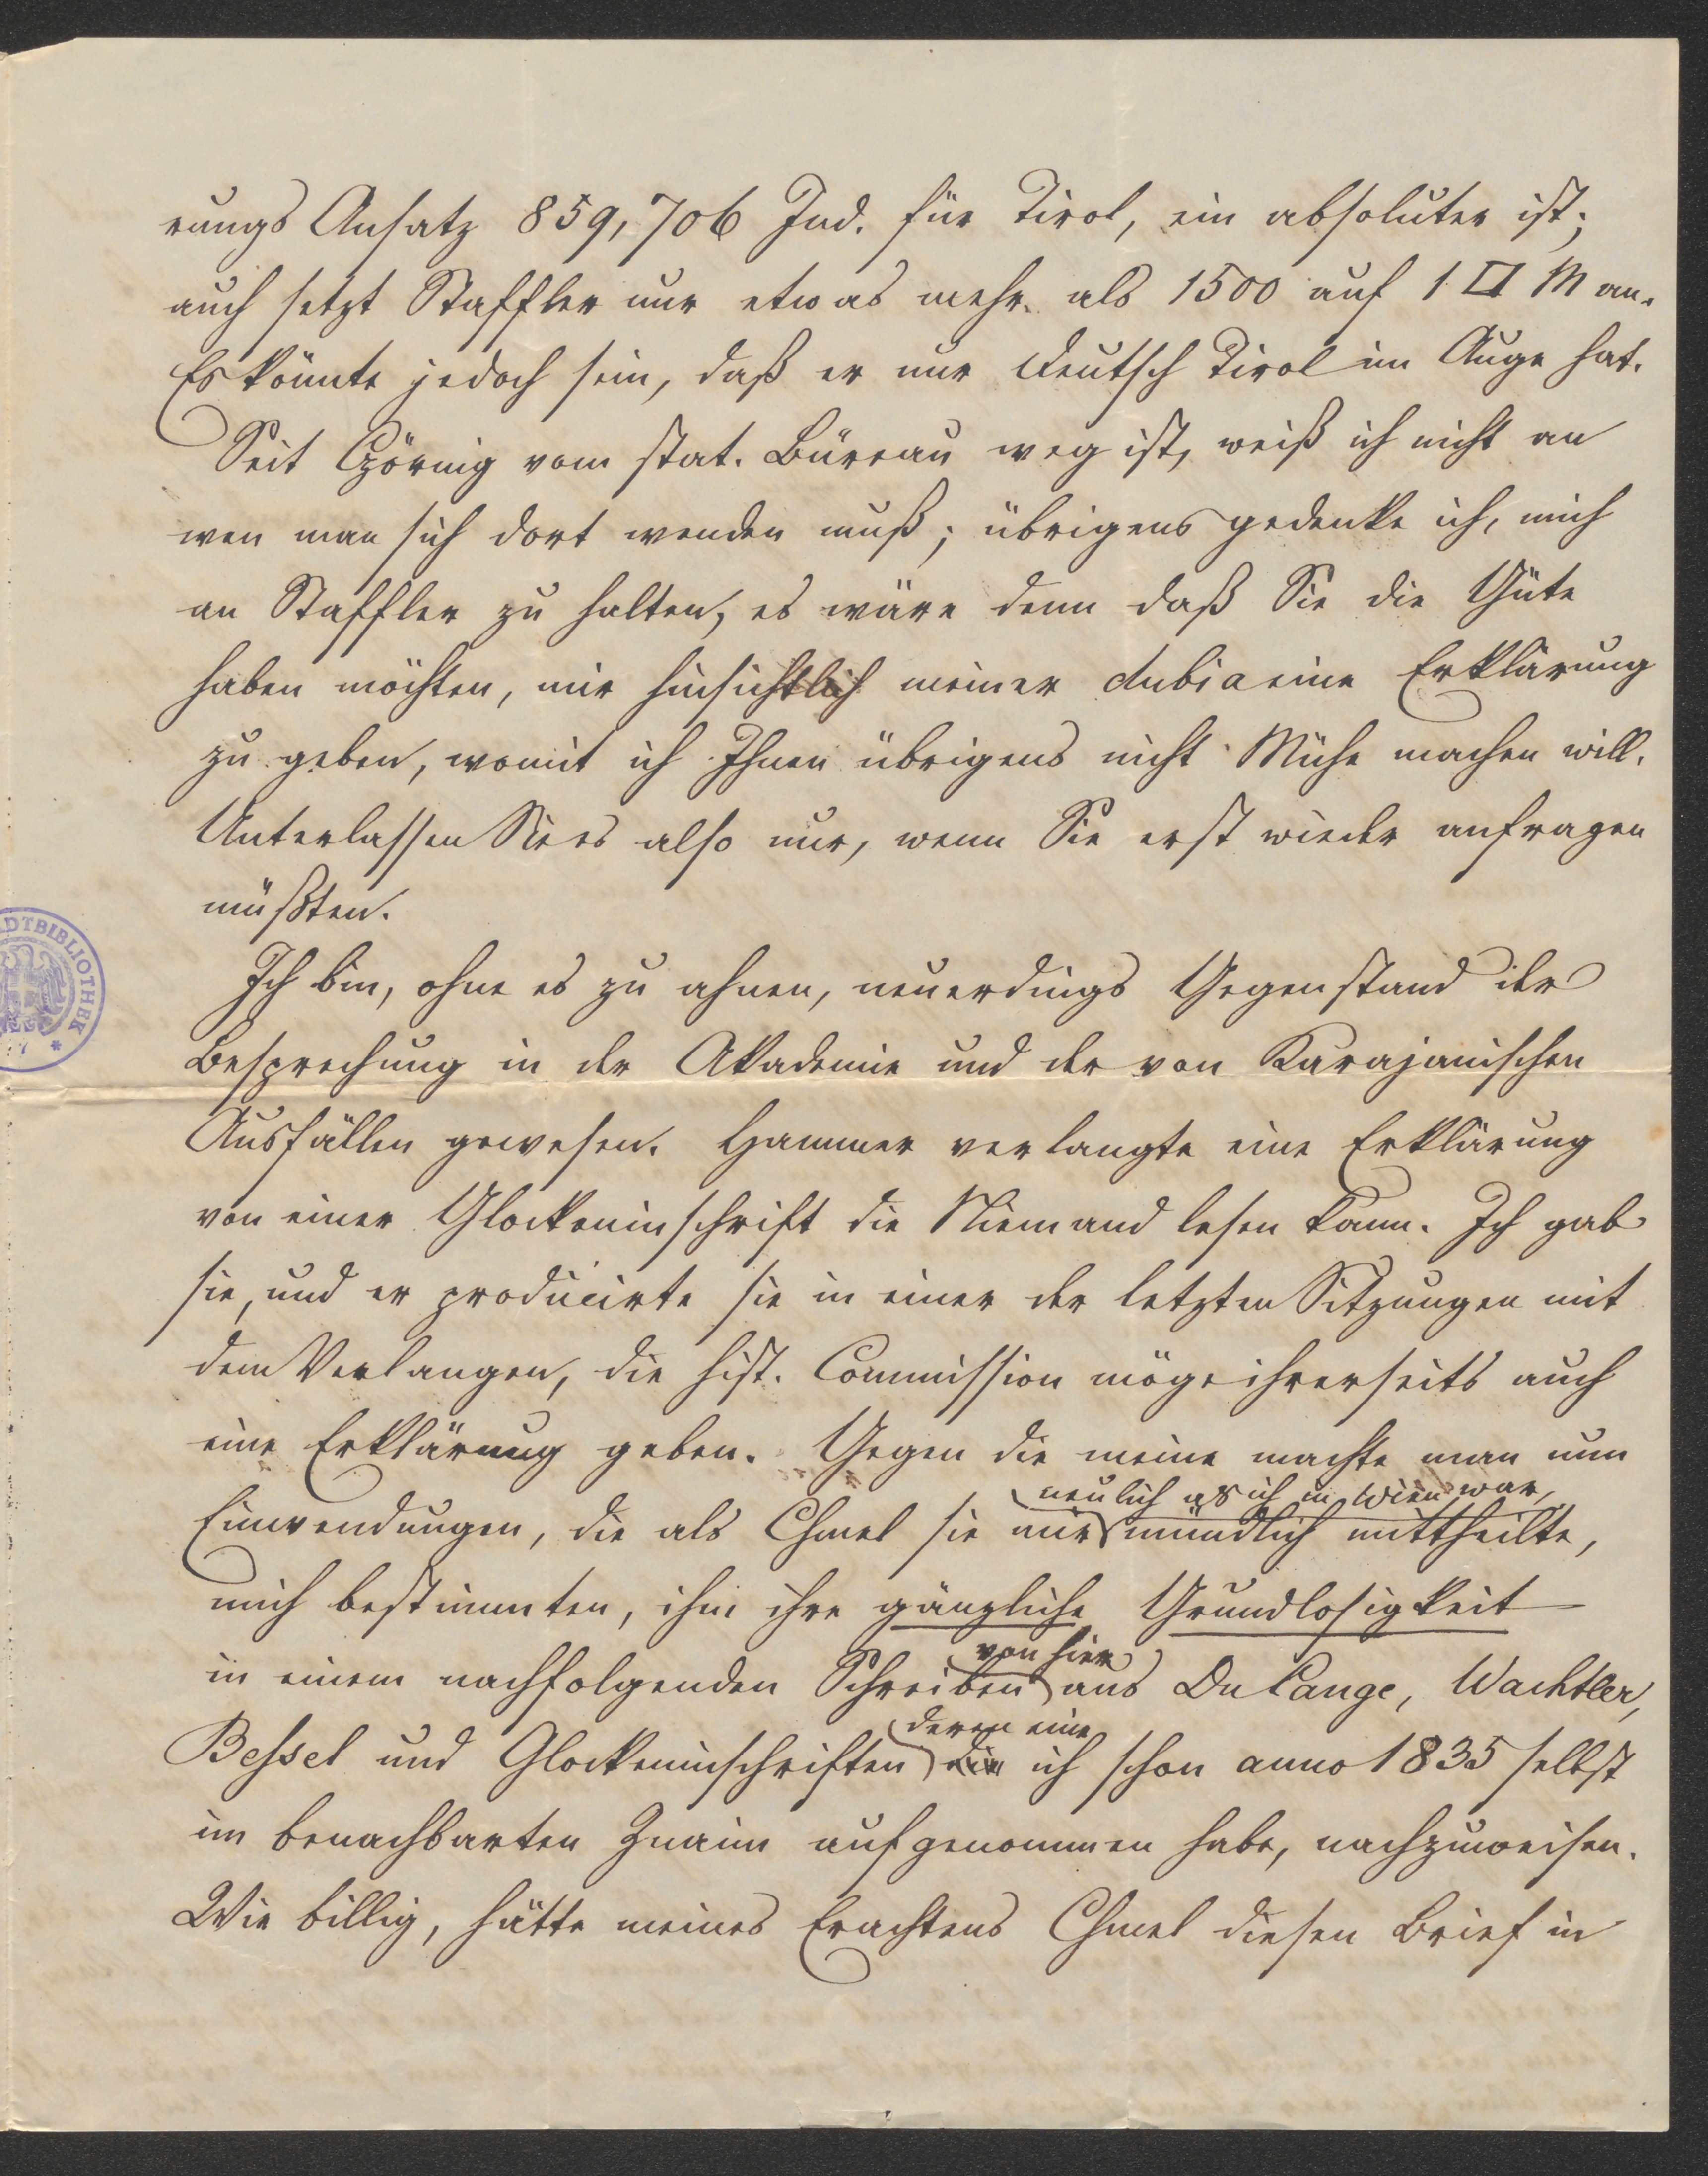 rungs Ansatz 859,706 Ind. für Tirol, ein absoluter ist;
auch setzt Staffler nur etwas mehr als 1500 auf 1 □ M an.
Es könnte jedoch sein, daß er nur Deutsch Tirol im Auge hat.
Seit Czörnig vom stat. Büreau weg ist, weiß ich nicht an
wen man sich dort wenden muß; übrigens gedenke ich, mich
an Staffler zu halten, es wäre denn daß Sie die Güte
haben möchten, mir hinsichtlich meiner dubia eine Erklärung
zu geben, womit ich Ihnen übrigens nicht Mühe machen will.
Unterlassen Sie es also nur, wenn Sie erst wieder anfragen
müßten.
Ich bin, ohne es zu ahnen, neuerdings Gegenstand der
Besprechung in der Akademie und der von Karajanischen
Ausfällen gewesen. Hammer verlangte eine Erklärung
von einer Glockeninschrift die Niemand lesen kann. Ich gab
sie, und er producirte sie in einer der letzten Sitzungen mit
dem Verlangen, die hist. Commission möge ihrerseits auch
eine Erklärung geben. Gegen die meine machte man nun
neulich als ich in Wien war,
Einwendungen, die als Chmel sie mir mündlich mittheilte,
mich bestimmten, ihm ihre gänzliche Grundlosigkeit
von hier
in einem nachfolgenden Schreiben aus DuCange, Wachtler,
deren eine
Bessel und Glockeninschriften die ich schon anno 1835 selbst
im benachbarten Znaim aufgenommen habe, nachzuweisen.
Wie billig, hätte meines Erachtens Chmel diesen Brief in
ADTBIBLIOTHEK *